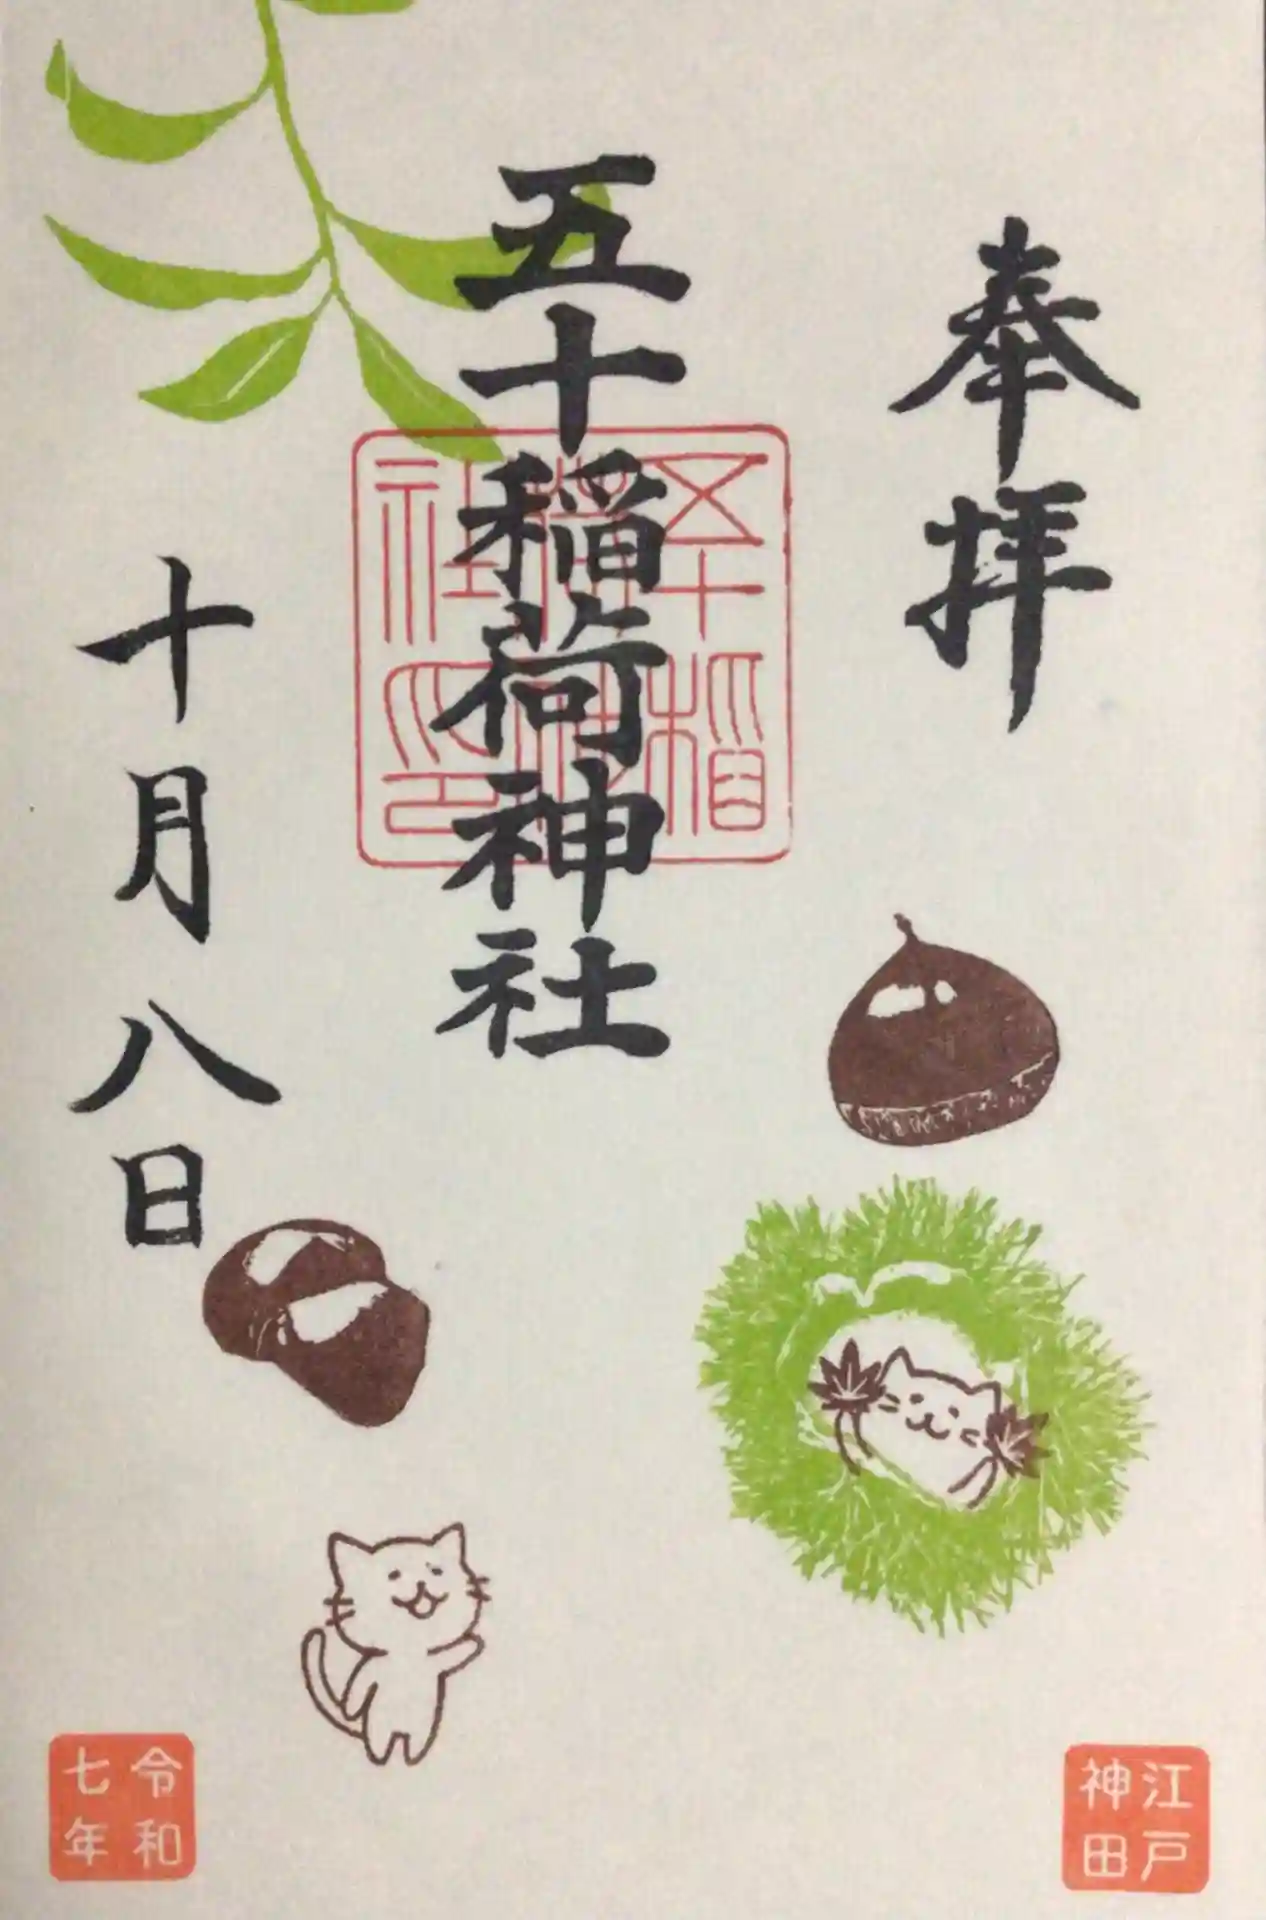 奉拝
五十稲荷神社
五十稲荷神社印
十月八日
江戸
神田
令和
七年